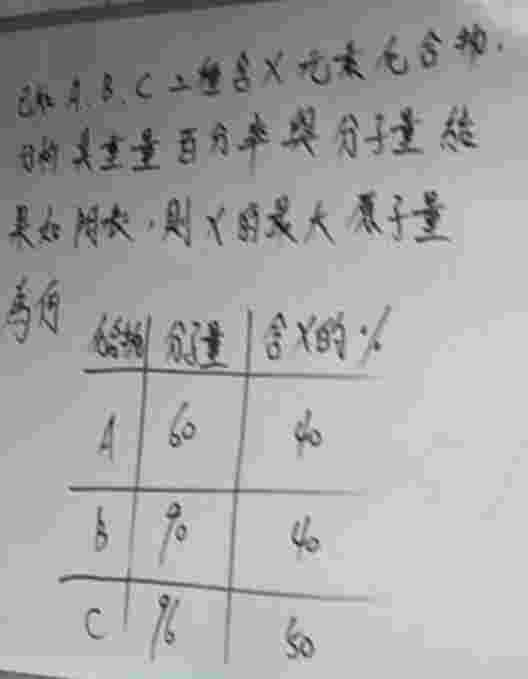 已知 A、B、C 三種含 X 元素化合物,
分析其重量百分率與分子量結
果如附表,則 X 的最大原子量
為何
化合物 分子量 含X的%
A 60 40
B 90 40
C 96 50